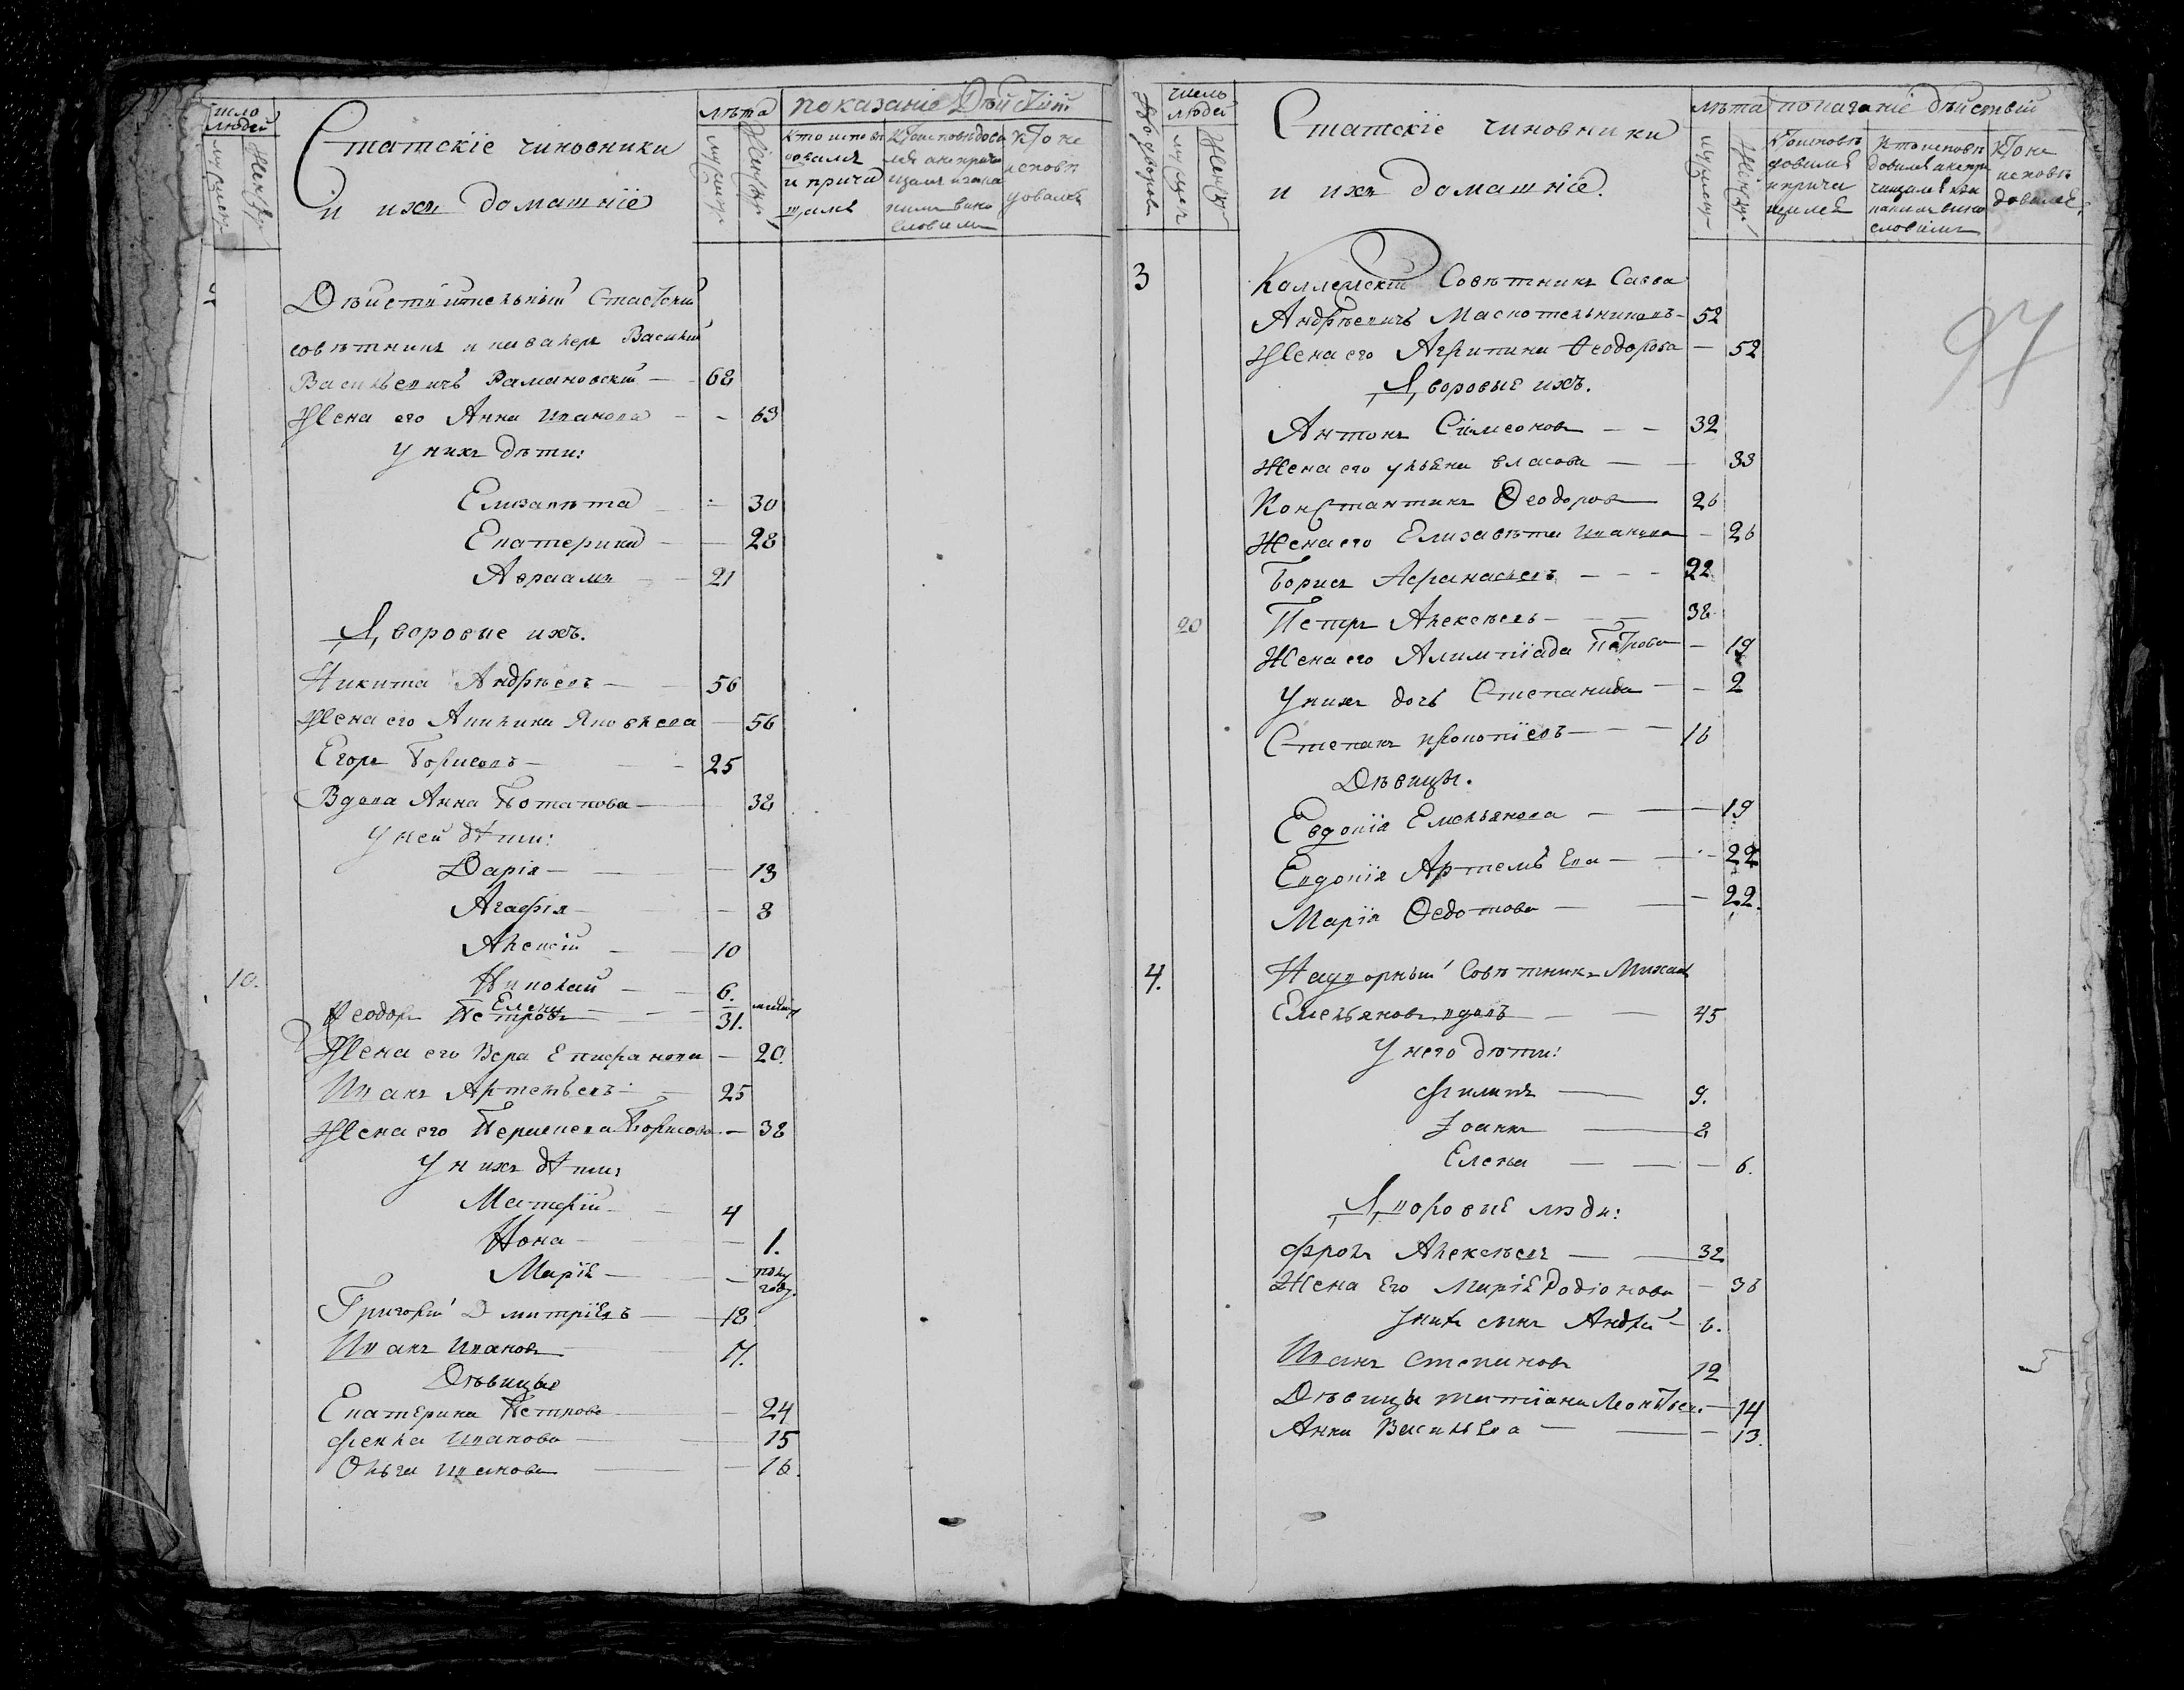 число
людей
мужеск
женск
Статскіе чиновники
и ихъ домашніе
лѣта
мужеск
женск
показаніе Дѣйствій
кто исповѣ
довалъ
и прича
щалъ
кто исповѣдова
исповѣ
довалъ
Дѣйствительный Статскій
совѣтникъ и кавалеръ Василій
Васильевичъ Романовскій — 68
Жена его Анна Иванова — 63
У нихъ дѣти:
Елизавѣта — 30
Екатерина — 28
Авраамъ — 21
Дворовые ихъ.
Никита Андрѣевъ — 56
Жена его Акилина Яковлева — 56
Егоръ Борисовъ — 25
Вдова Анна Потапова — 38
У ней дѣти:
Дарія — 13
Агафія — 8
Алексій — 10
10.
Николай — 6.
Елена —
Ѳеодоръ Петровъ — 31.
Жена его Вера Епифанова — 20.
Иванъ Артемьевъ — 25
Жена его Борисова — 38
У нихъ дѣти
4
Нона — 1.
Марія — полу
году.
Григорій Дмитріевъ — 18
Иванъ Ивановъ — 17.
Дѣвицы
Екатерина Петрова — 24
Фекла Иванова — 15
Ольга Иванова — 16.
число
людей
мужеск
женск
Статскіе чиновники
и ихъ домашніе.
лѣта
мужеск
женск
показаніе дѣйствій
кто исповѣ
довалсѧ
и прича
щалсѧ
кто исповѣ
кто не
исповѣ
довалсѧ
97
3
Коллежскій Совѣтникъ Савва
Андрѣевичъ Маслотельниковъ — 52
Жена его Агрипина Ѳеодорова — 52
Дворовые ихъ.
Антонъ Симеоновъ — 32
Жена его Ульяна Власова — 33
Константинъ Ѳеодоровъ — 26
Жена его Елизавѣта Иванова — 26
Борисъ Афанасьевъ — 22
20
Петръ Алексѣевъ — 38
Жена его Алимпіада Петрова — 19
У нихъ дочь Степанида — 2
Степанъ Прокопіевъ — 16
Дѣвицы.
Евдокія Емельянова — 19
Евдокія Артемьева — 22
Марія Ѳедотова — 22.
4.
Надворный Совѣтникъ Михаилъ
Емельяновъ вдовъ — 45
У него дѣти:
Филипъ — 9.
Іоаннъ — 2
Елена — 6.
Дворовые люди:
Фролъ Алексѣевъ — 32
Жена Его Марія Родіонова — 36
У нихъ сынъ Андрей — 6.
Иванъ Степановъ 12
Дѣвицы Татіана Леонтьева — 14
Анна Васильева — 13.